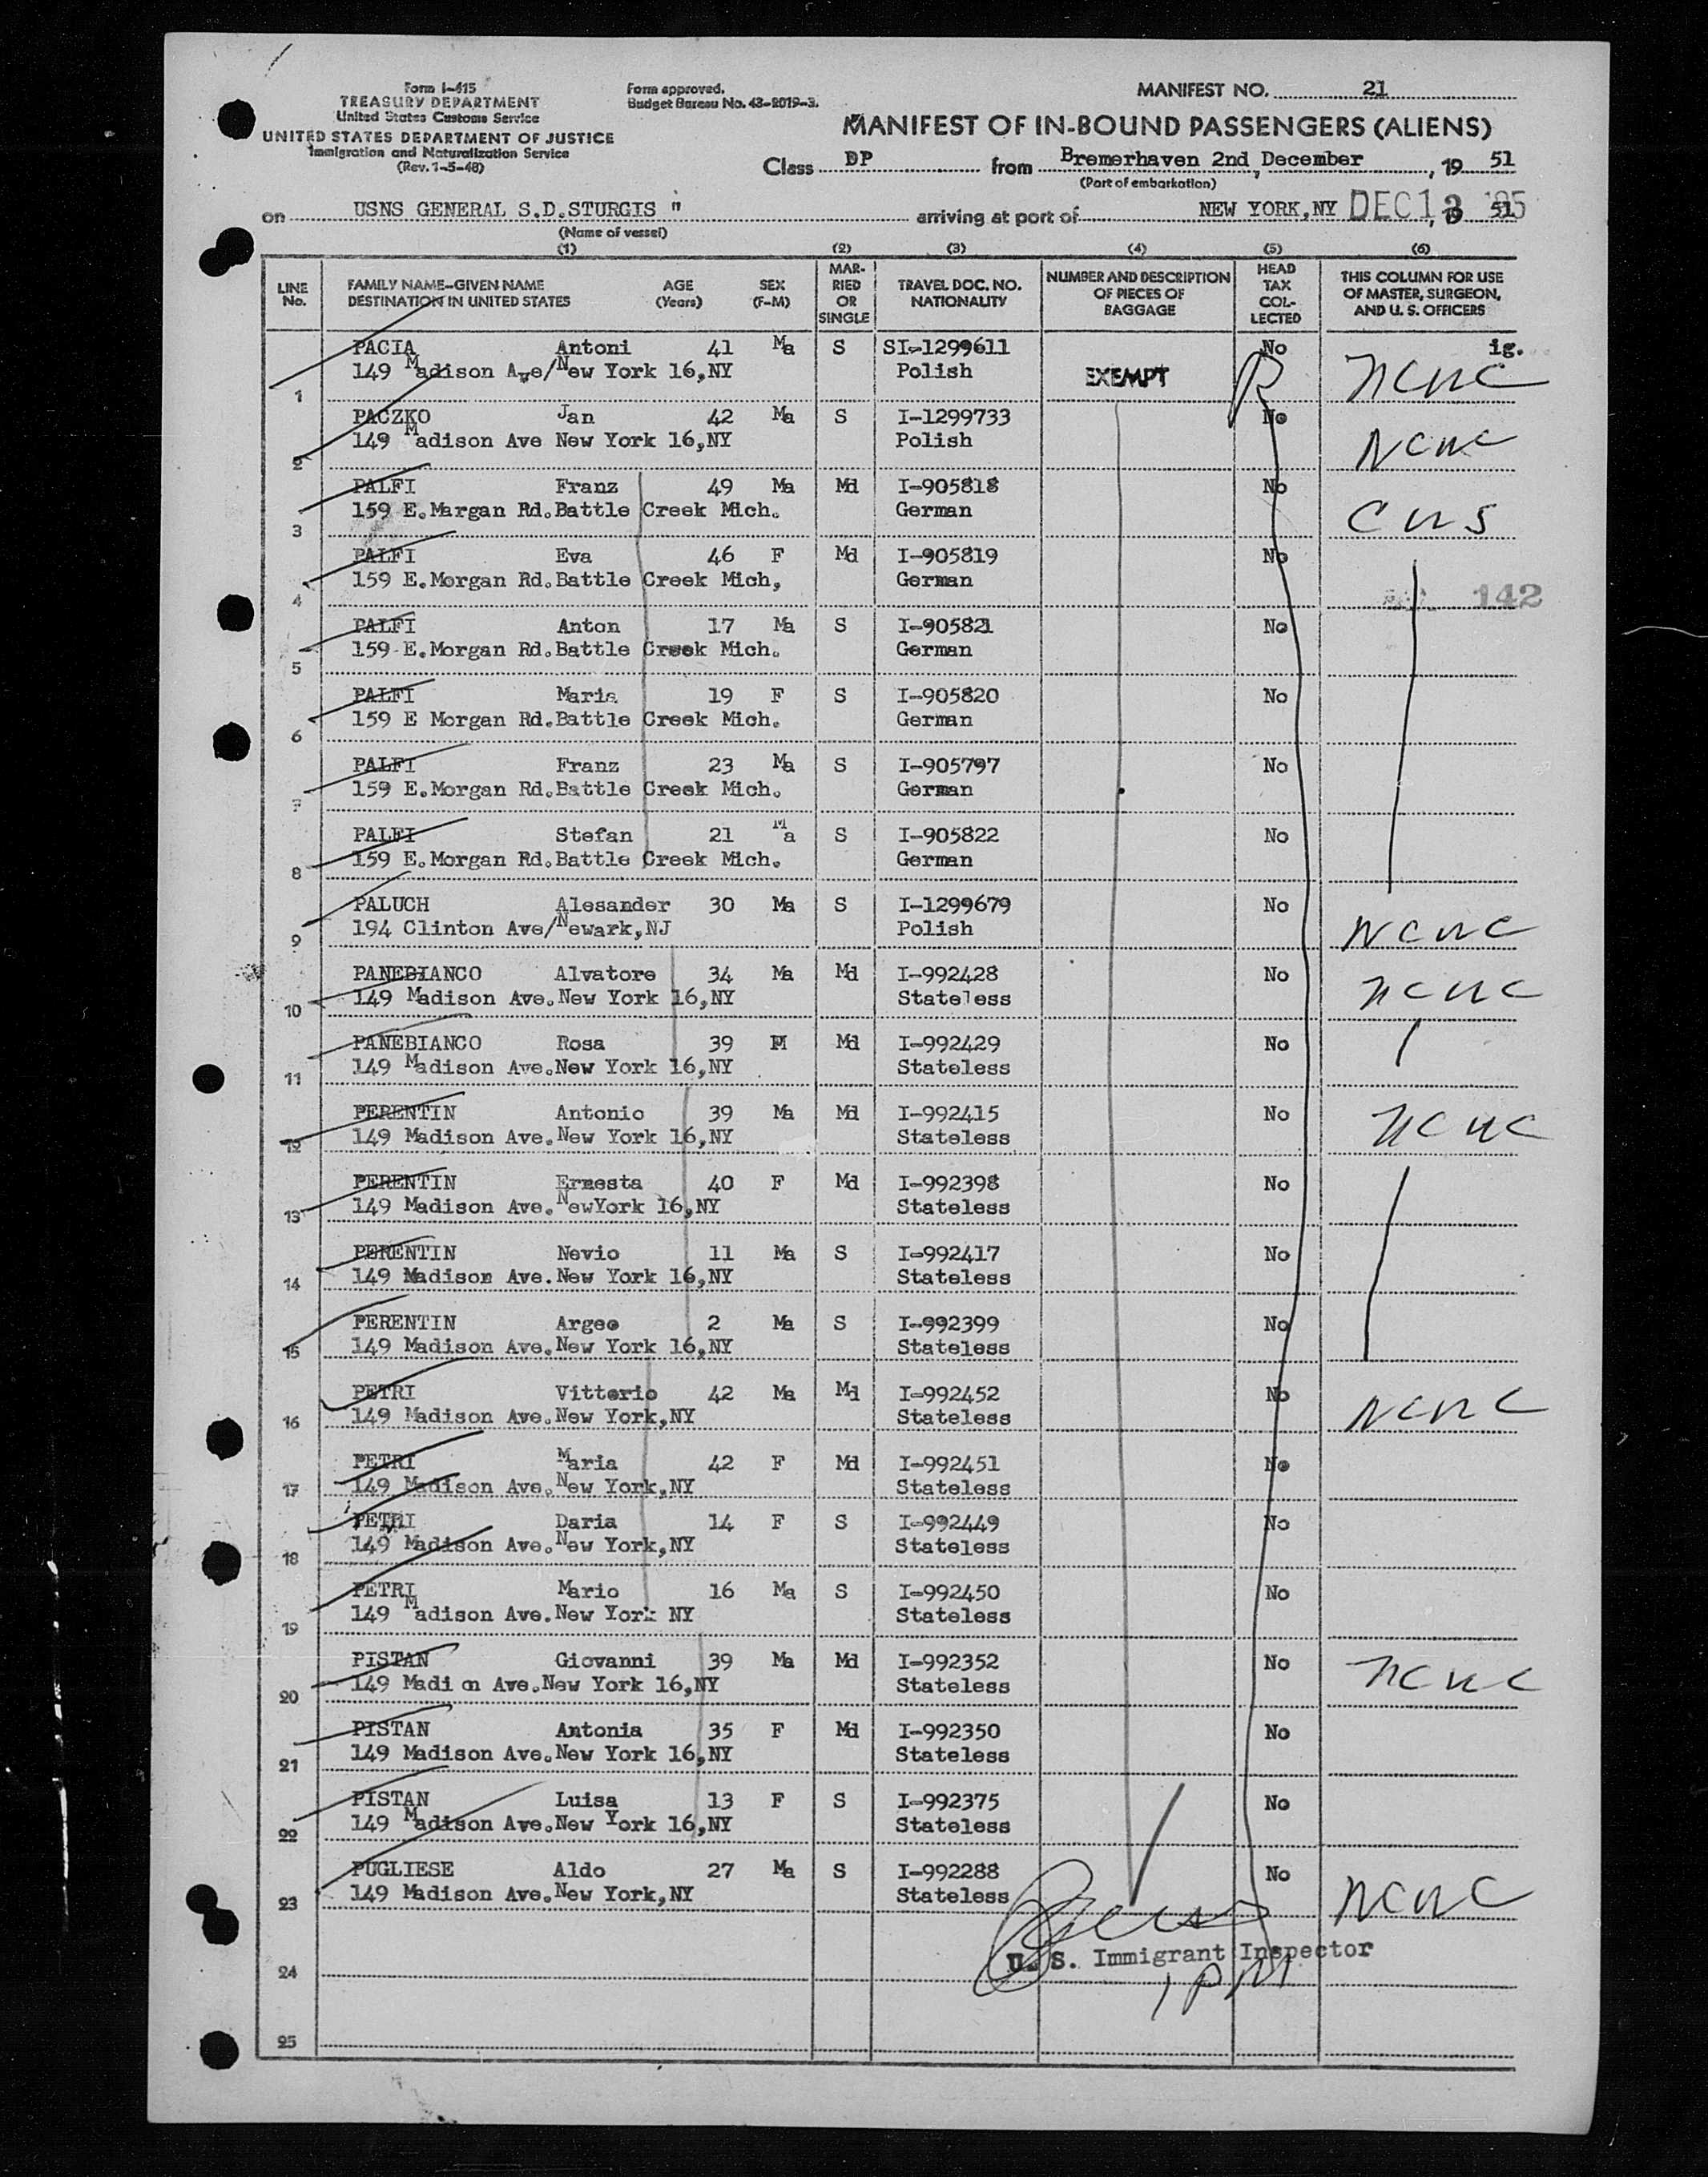 Form I-415
TREASURY DEPARTMENT
United States Customs Service
UNITED STATES DEPARTMENT OF JUSTICE
Immigration and Naturalization Service
(Rev. 1-5-48)
Form approved.
Budget Bureau No. 43-R019-3.
MANIFEST NO. 21
MANIFEST OF IN-BOUND PASSENGERS (ALIENS)
Class DP from Bremerhaven 2nd, December, 19 51
(Port of embarkation)
on USNS GENERAL S.D.STURGIS " arriving at port of NEW YORK,NY DEC 13 51
(Name of vessel)
(1) (2) (3) (4) (5) (6)
LINE No. FAMILY NAME–GIVEN NAME DESTINATION IN UNITED STATES AGE (Years) SEX (F-M) MARRIED OR SINGLE TRAVEL DOC. NO. NATIONALITY NUMBER AND DESCRIPTION OF PIECES OF BAGGAGE HEAD TAX COLLECTED THIS COLUMN FOR USE OF MASTER, SURGEON, AND U. S. OFFICERS
PACIA Antoni 41 Ma S SI-1299611 No ig.
1 149 Madison Ave/New York 16,NY Polish EXEMPT NCNC
PACZKO Jan 42 Ma S I-1299733 No
2 149 Madison Ave New York 16,NY Polish NCNC
PALFI Franz 49 Ma Md I-905818 No
3 159 E.Margan Rd.Battle Creek Mich. German CNS
PALFI Eva 46 F Md I-905819 No
4 159 E.Morgan Rd.Battle Creek Mich, German 142
PALFI Anton 17 Ma S I-905821 No
5 159 E.Morgan Rd.Battle Creek Mich. German
PALFI Maria 19 F S I-905820 No
6 159 E Morgan Rd.Battle Creek Mich. German
PALFI Franz 23 Ma S I-905797 No
7 159 E.Morgan Rd.Battle Creek Mich. German
PALFI Stefan 21 Ma S I-905822 No
8 159 E.Morgan Rd.Battle Creek Mich. German
PALUCH Alesander 30 Ma S I-1299679 No
9 194 Clinton Ave/Newark,NJ Polish NCNC
PANEBIANCO Alvatore 34 Ma Md I-992428 No
10 149 Madison Ave.New York 16,NY Stateless NCNC
PANEBIANCO Rosa 39 Md I-992429 No
11 149 Madison Ave.New York 16,NY Stateless
PERENTIN Antonio 39 Ma Md I-992415 No
12 149 Madison Ave.New York 16,NY Stateless NCNC
PERENTIN Ernesta 40 F Md I-992398 No
13 149 Madison Ave.NewYork 16,NY Stateless
PERENTIN Nevio 11 Ma S I-992417 No
14 149 Madison Ave.New York 16,NY Stateless
PERENTIN Argeo 2 Ma S I-992399 No
15 149 Madison Ave.New York 16,NY Stateless
PETRI Vittorio 42 Ma Md I-992452 No
16 149 Madison Ave.New York,NY Stateless NCNC
PETRI Maria 42 F Md I-992451 No
17 149 Madison Ave.New York,NY Stateless
PETRI Daria 14 F S I-992449 No
18 149 Madison Ave.New York,NY Stateless
PETRI Mario 16 Ma S I-992450 No
19 149 Madison Ave.New York NY Stateless
PISTAN Giovanni 39 Ma Md I-992352 No
20 149 Madi on Ave.New York 16,NY Stateless NCNC
PISTAN Antonia 35 F Md I-992350 No
21 149 Madison Ave.New York 16,NY Stateless
PISTAN Luisa 13 F S I-992375 No
22 149 Madison Ave.New York 16,NY Stateless
PUGLIESE Aldo 27 Ma S I-992288 No
23 149 Madison Ave.New York,NY Stateless NCNC
U. S. Immigrant Inspector
24
1 PM
25